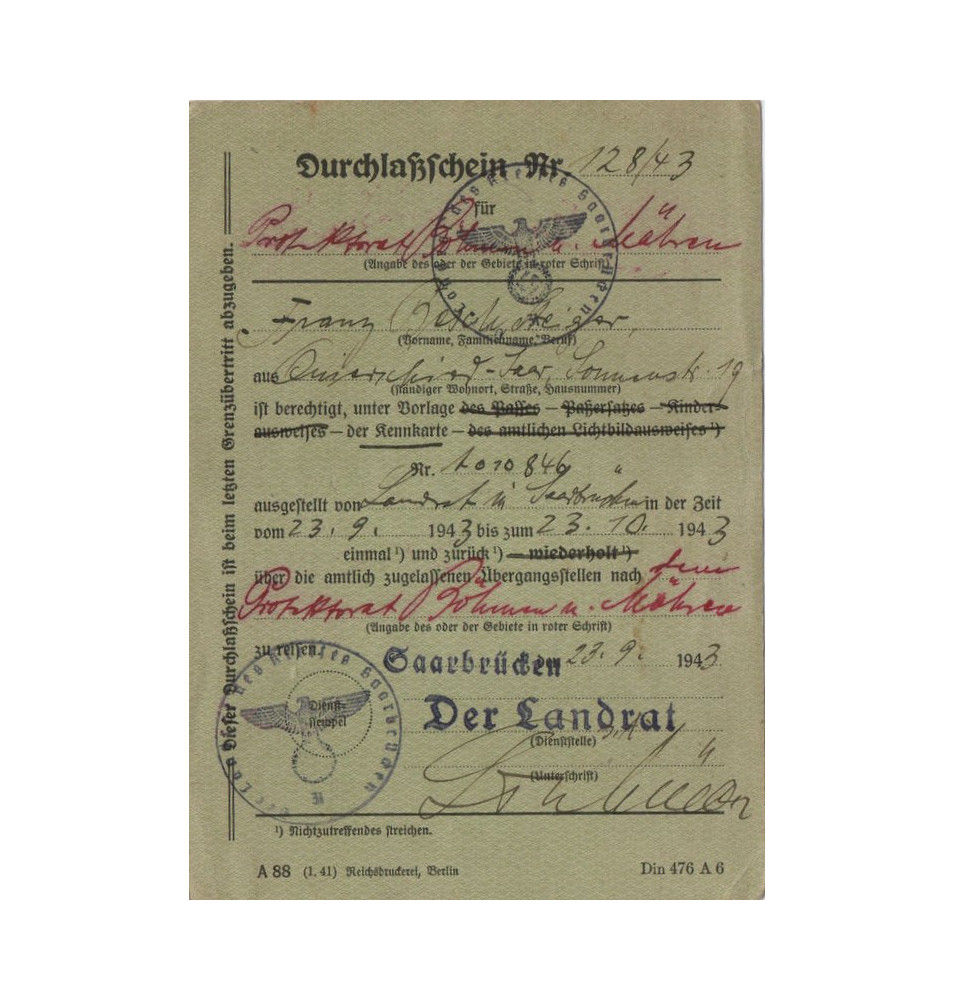 Durchlaßschein Nr. 128/43
für
Protektorat Böhmen u. Mähren
(Angabe des oder der Gebiete in roter Schrift)
Franz
(Vorname, Familienname, Beruf)
aus -Saar, Sonnenstr. 19
(ständiger Wohnort, Straße, Hausnummer)
ist berechtigt, unter Vorlage des Passes – Paßersatzes – Kinder-
ausweises – der Kennkarte – des amtlichen Lichtbildausweises ¹)
Nr.
ausgestellt von Landrat in Saarbrücken in der Zeit
vom 23. 9. 1943 bis zum 23. 10. 1943
einmal ¹) und zurück ¹) – wiederholt ¹)
über die amtlich zugelassenen Übergangsstellen nach dem
Protektorat Böhmen u. Mähren
(Angabe des oder der Gebiete in roter Schrift)
zu reisen.
Saarbrücken 23. 9. 1943
Dienst-
stempel
Der Landrat
(Dienststelle)
(Unterschrift)
¹) Nichtzutreffendes streichen.
A 88 (1. 41) Reichsdruckerei, Berlin Din 476 A 6
Dieser Durchlaßschein ist beim letzten Grenzübertritt abzugeben.